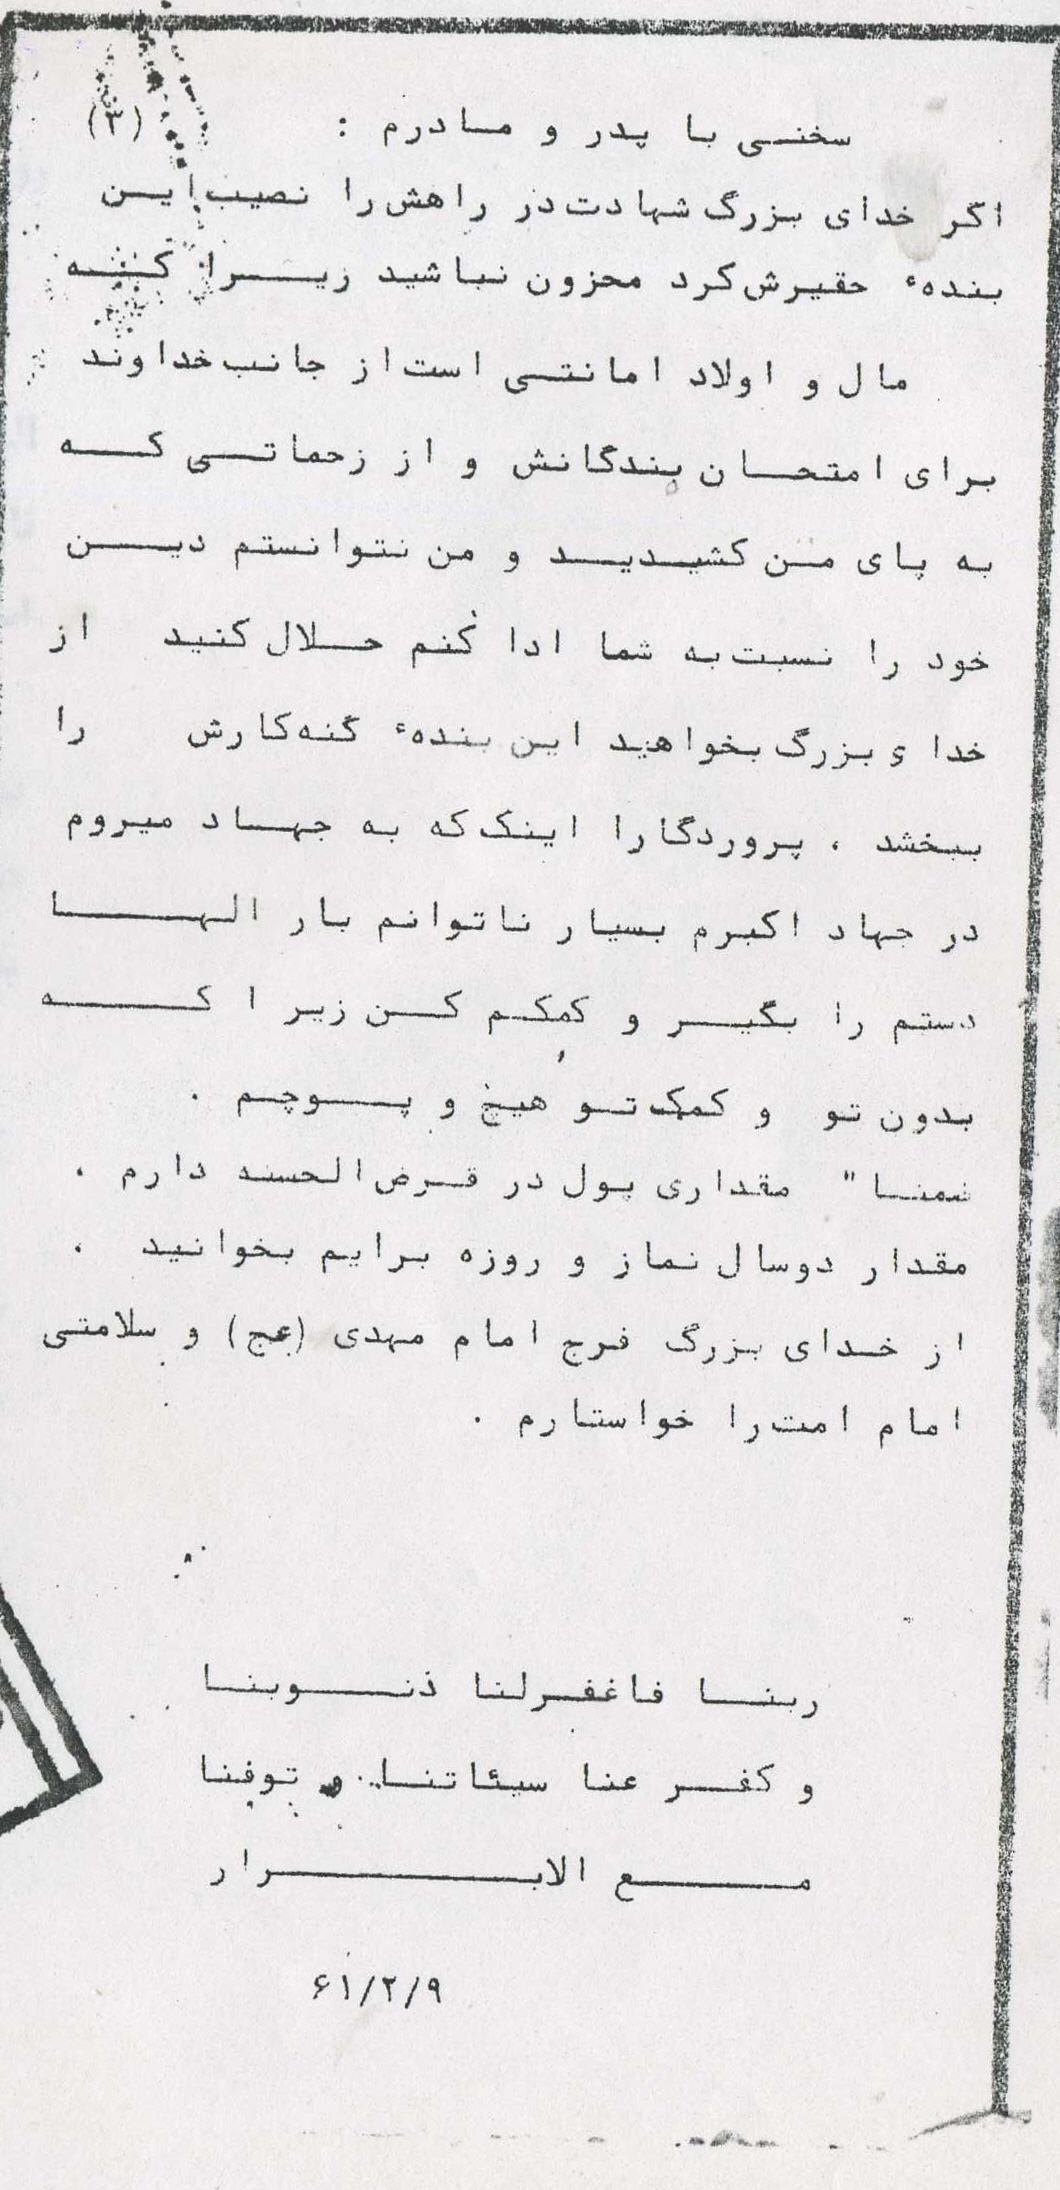 سخنی با پدر و مادرم : (۳)
اگر خدای بزرگ شهادت در راهش را نصیب این
بندهء حقیرش کرد محزون نباشید زیرا که
مال و اولاد امانتی است از جانب خداوند
برای امتحان بندگانش و از زحماتی که
به پای من کشیدید و من نتوانستم دین
خود را نسبت به شما ادا کنم حلال کنید از
خدای بزرگ بخواهید این بندهء گنه‌کارش را
ببخشد . پروردگارا اینک که به جهاد میروم
در جهاد اکبرم بسیار ناتوانم بار الها
دستم را بگیر و کمکم کن زیرا که
بدون تو و کمک تو هیچ و پوچم .
ضمنا" مقداری پول در قرض الحسنه دارم .
مقدار دوسال نماز و روزه برایم بخوانید .
از خدای بزرگ فرج امام مهدی (عج) و سلامتی
امام امت را خواستارم .
ربنا فاغفرلنا ذنوبنا
و کفر عنا سیئاتنا و توفنا
مع الابرار
۶۱/۲/۹